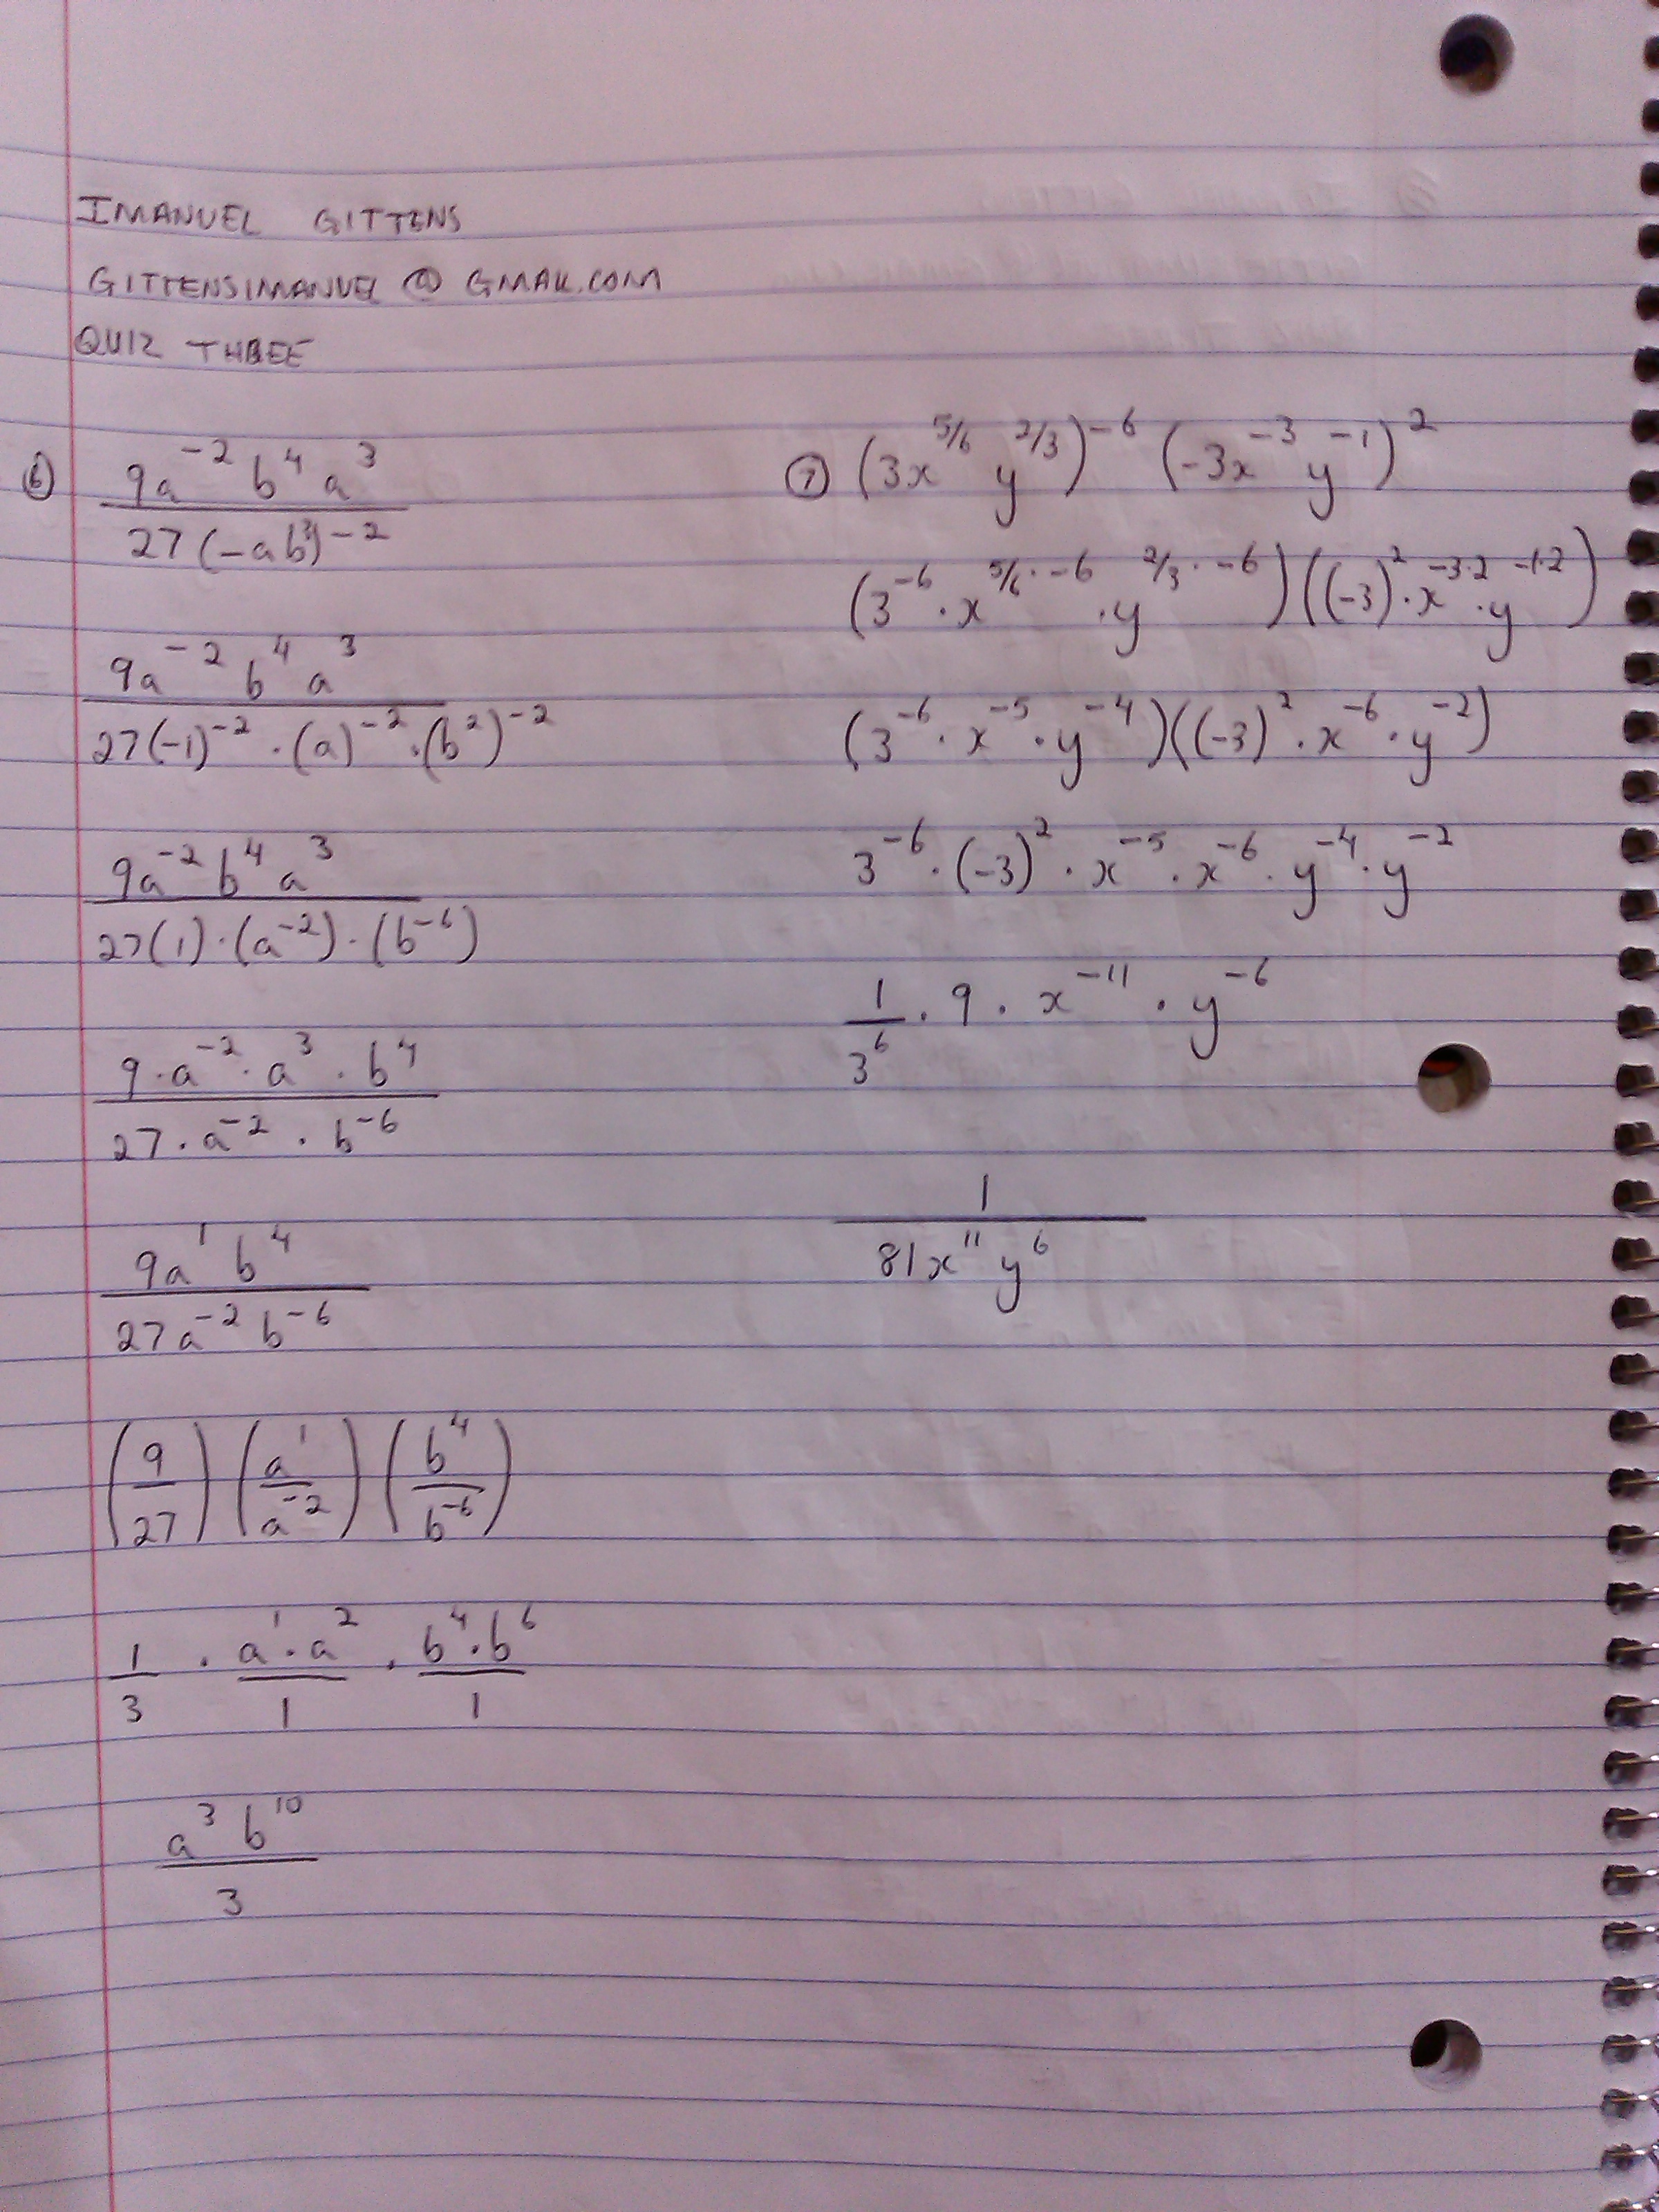 IMANUEL GITTENS
GITTENSIMANUEL @ GMAIL.COM
QUIZ THREE
⑥ 9a⁻² b⁴ a³ / 27(-ab³)⁻²
9a⁻² b⁴ a³ / 27(-1)⁻² · (a)⁻² · (b²)⁻²
9a⁻² b⁴ a³ / 27(1) · (a⁻²) · (b⁻⁶)
9 · a⁻² · a³ · b⁴ / 27 · a⁻² · b⁻⁶
9a¹ b⁴ / 27a⁻² b⁻⁶
(9/27) (a¹/a⁻²) (b⁴/b⁻⁶)
1/3 · a¹ · a²/1 · b⁴ · b⁶/1
a³ b¹⁰ / 3
⑦ (3x^5/6 y^2/3)⁻⁶ (-3x⁻³ y⁻¹)²
(3⁻⁶ · x^5/6 · -6 · y^2/3 · -6)((-3)² · x^-3·2 · y^-1·2)
(3⁻⁶ · x⁻⁵ · y⁻⁴)((-3)² · x⁻⁶ · y⁻²)
3⁻⁶ · (-3)² · x⁻⁵ · x⁻⁶ · y⁻⁴ · y⁻²
1/3⁶ · 9 · x⁻¹¹ · y⁻⁶
1 / 81x¹¹ y⁶